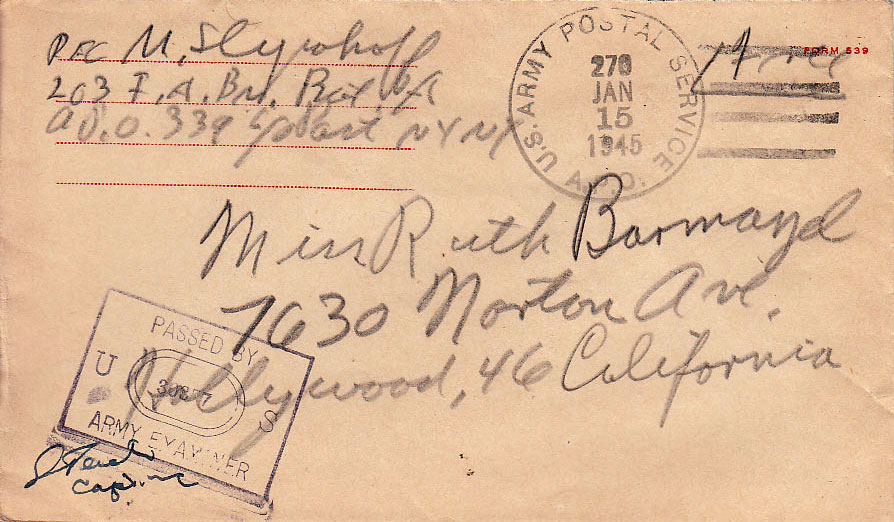 PFC M.
203 F.A. Bn. Bat
A.P.O. 339 c/o Past NY NY
U.S. ARMY POSTAL SERVICE
A.P.O.
270
JAN
15
1945
Free
FORM 539
Miss Ruth Barmazel
7630 Norton Ave.
Hollywood, 46 California
PASSED BY
U S
ARMY EXAMINER
Capt.